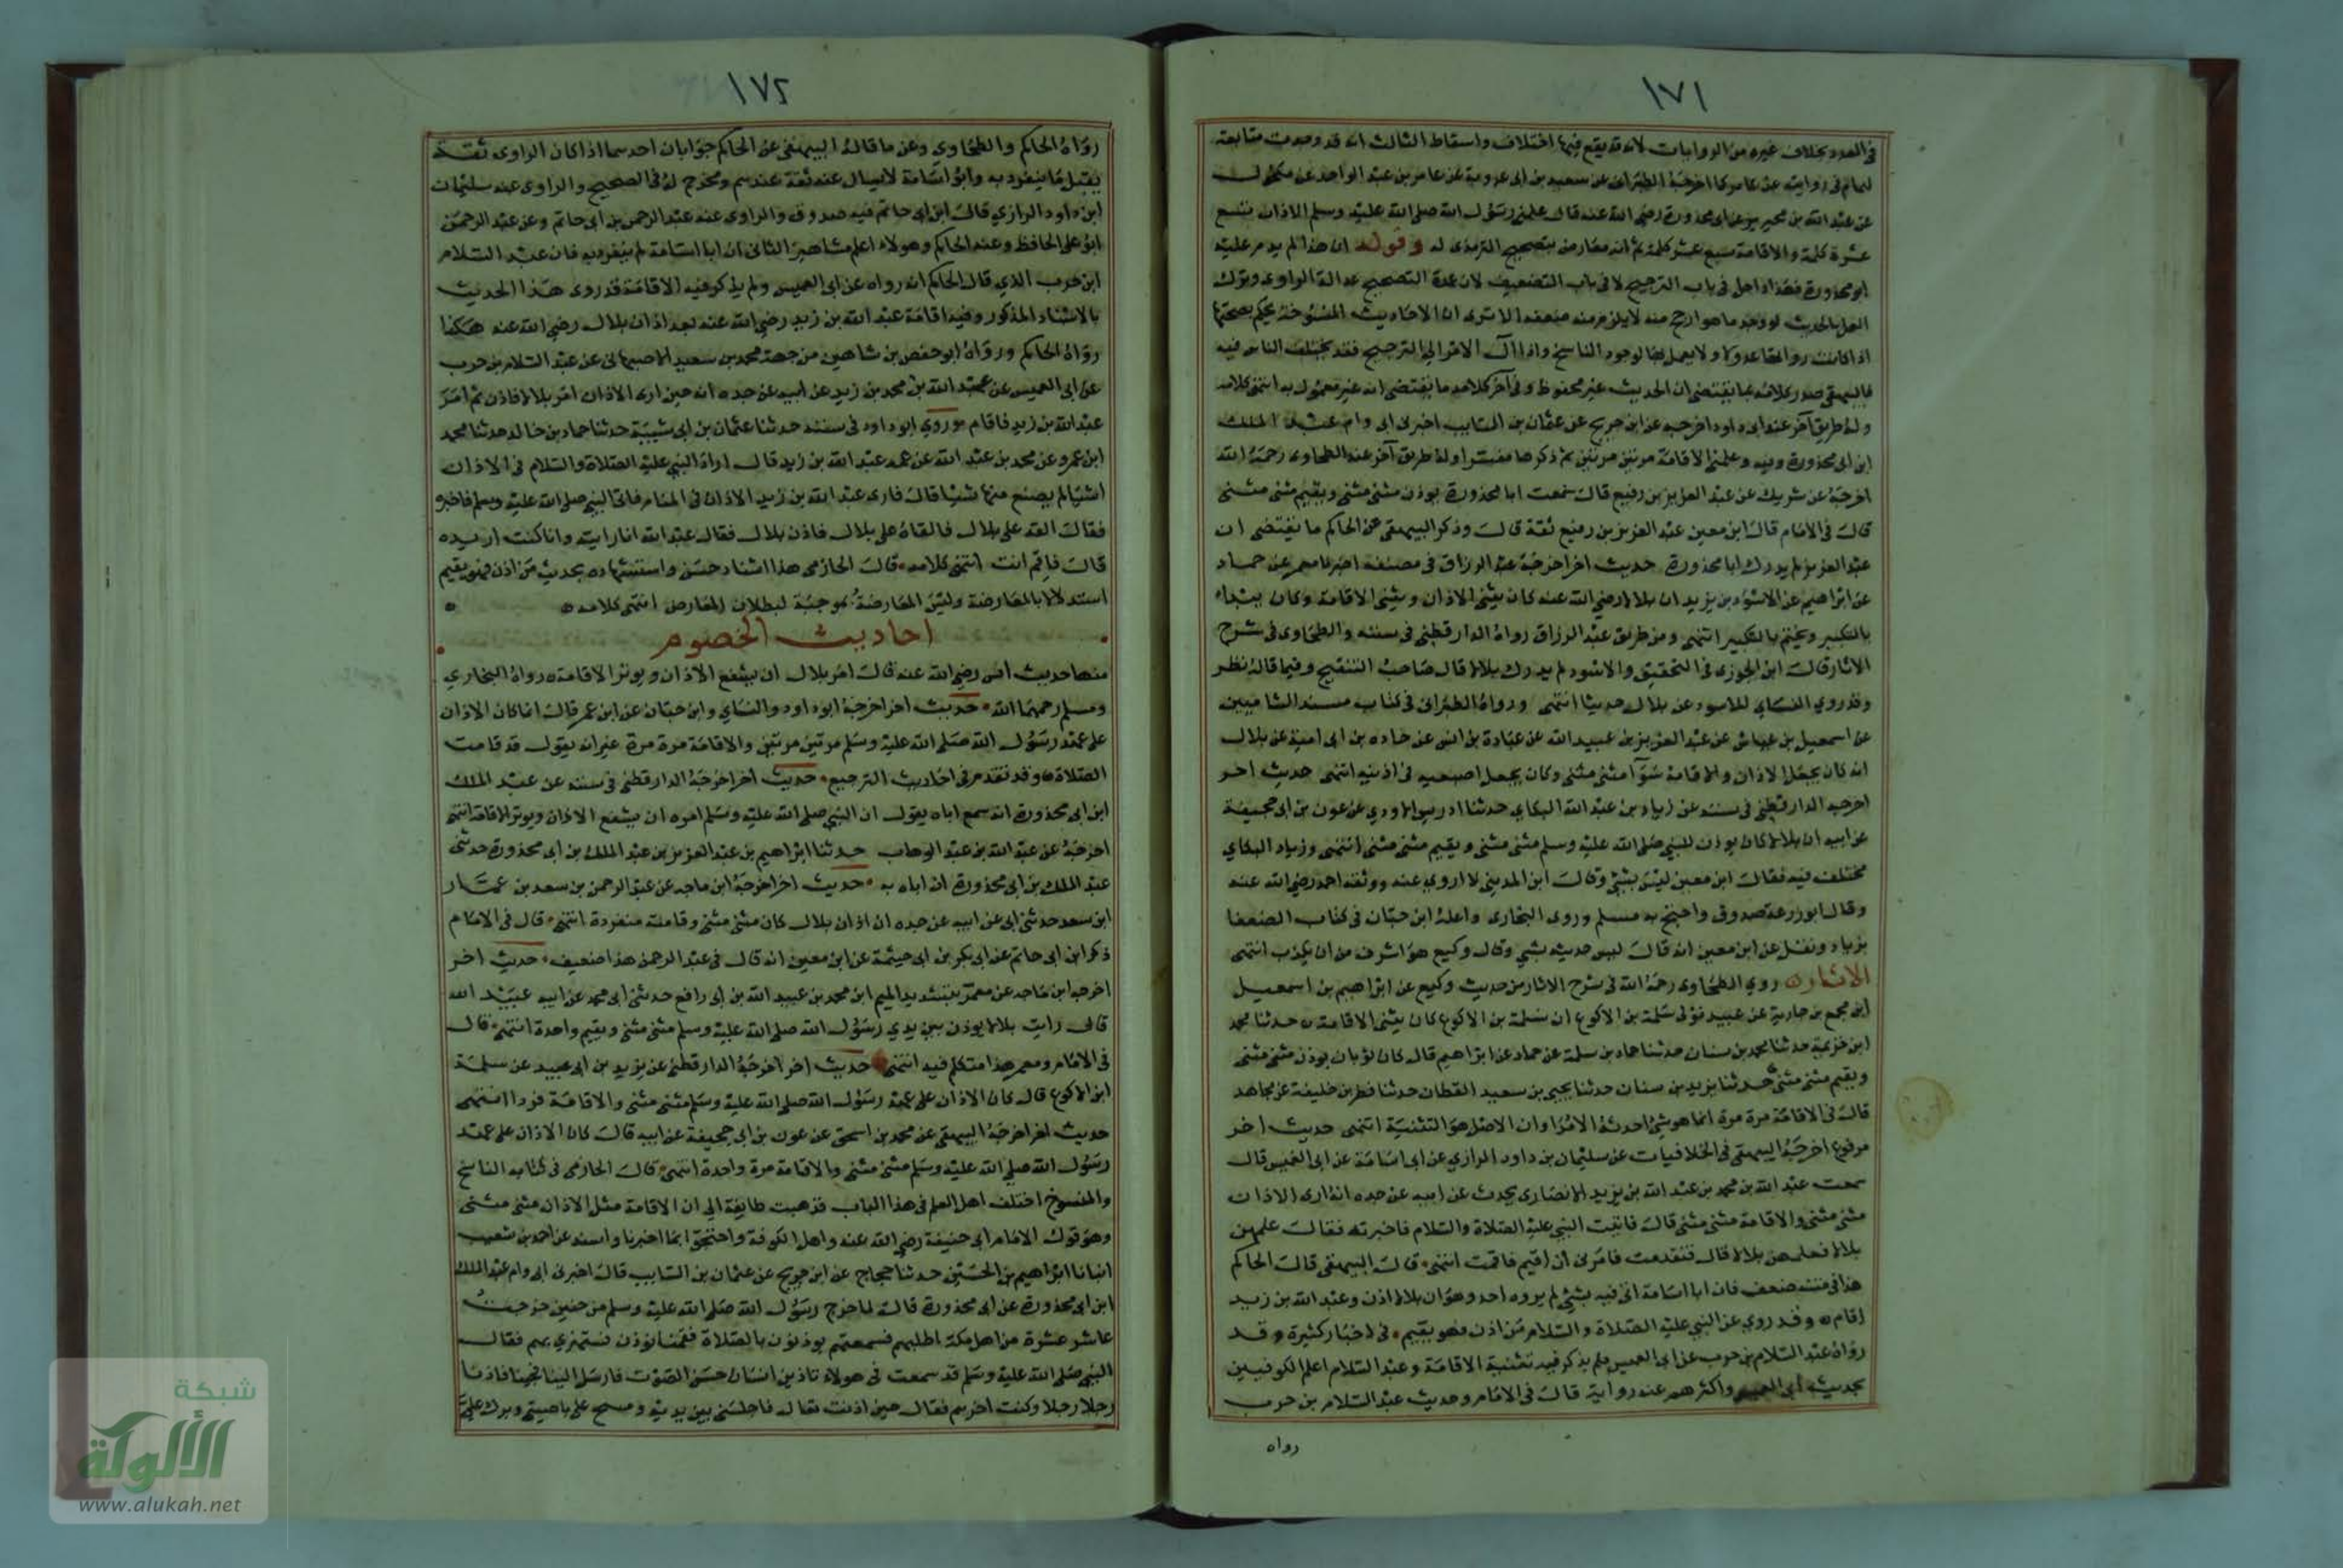 ١٧١
في العدد بخلاف غيره من الروايات لانه قد يقع فيها اختلاف واسقاط الثالث انه قد وجدت متابعة
لهمام في روايته عن عامر كما اخرجه الطبراني عن سعيد بن ابي عروبة عن عامر بن عبد الواحد عن مكحول
عن عبد الله بن محيريز عن ابي محذورة رضي الله عنه قال علمني رسول الله صلى الله عليه وسلم الاذان تسع
عشرة كلمة والاقامة سبع عشر كلمة ثم انه معارض بتصحيح الترمذي له وقوله ان هذا لم يدم عليه
ابو محذورة فهذا داخل في باب الترجيح لا في باب التضعيف لان عمدة التصحيح عدالة الراوي وترك
العمل بالحديث لوجود ما هو ارجح منه لا يلزم منه ضعفه الا ترى ان الاحاديث المنسوخة يحكم بصحتها
اذا كانت رواتها عدولا ولا يعمل بها لوجود الناسخ واذا آل الامر الى الترجيح فقد يختلف الناس فيه
فالبيهقي صدر كلامه بما يقتضي ان الحديث غير محفوظ وفي آخر كلامه ما يقتضي انه غير معمول به انتهى كلامه
وله طريق آخر عند ابي داود اخرجه عن ابن جريج عن عثمان بن السايب اخبرني ابي وام عبد الملك
ابن ابي محذورة وفيه وعلمني الاقامة مرتين مرتين ثم ذكرها مفسرا وله طريق آخر عند الطحاوي رحمه الله
اخرجه عن شريك عن عبد العزيز بن رفيع قال سمعت ابا محذورة يوذن مثنى مثنى ويقيم مثنى مثنى
قال في الامام قال ابن معين عبد العزيز بن رفيع ثقة قال وذكر البيهقي عن الحاكم ما يقتضي ان
عبد العزيز لم يدرك ابا محذورة حديث اخر اخرجه عبد الرزاق في مصنفه اخبرنا معمر عن حماد
عن ابراهيم عن الاسود بن يزيد ان بلالا رضي الله عنه كان يثني الاذان ويثني الاقامة وكان يبداء
بالتكبير ويختم بالتكبير انتهى ومن طريق عبد الرزاق رواه الدارقطني في سننه والطحاوي في شرح
الاثار قال ابن الجوزي في التحقيق والاسود لم يدرك بلالا قال صاحب التنقيح وفيما قاله نظر
وقد روي النسائي للاسود عن بلال حديثا انتهى ورواه الطبراني في كتاب مسند الشاميين
عن اسمعيل بن عياش عن عبد العزيز بن عبيد الله عن عبادة بن انس عن جناده بن ابي امية عن بلال
انه كان يجعل الاذان والاقامة سوآ مثنى مثنى وكان يجعل اصبعيه في اذنيه انتهى حديث اخر
اخرجه الدارقطني في سننه عن زياد بن عبد الله البكاي حدثنا ادريس الاودي عن عون بن ابي جحيفة
عن ابيه ان بلالا كان يوذن للنبي صلى الله عليه وسلم مثنى مثنى ويقيم مثنى مثنى انتهى وزياد البكاي
مختلف فيه فقال ابن معين ليس بشئ وقال ابن المديني لا اروي عنه ووثقه احمد رضي الله عنه
وقال ابو زرعة صدوق واحتج به مسلم وروي البخاري واعله ابن حبان في كتاب الضعفا
بزياد ونقل عن ابن معين انه قال ليس حديثه بشي وقال وكيع هو اشرف من ان يكذب انتهى
الاثار روي الطحاوي رحمه الله في شرح الاثار من حديث وكيع عن ابراهيم بن اسمعيل
ابن مجمع بن جارية عن عبيد مولى سلمة بن الاكوع ان سلمة بن الاكوع كان يثني الاقامة حدثنا محمد
ابن خزيمة حدثنا محمد بن سنان حدثنا حماد بن سلمة عن حماد عن ابراهيم قال كان ثوبان يوذن مثنى مثنى
ويقيم مثنى مثنى حدثنا يزيد بن سنان حدثنا يحيى بن سعيد القطان حدثنا فطر بن خليفة عن مجاهد
قال في الاقامة مرة مرة انما هو شئ احدثه الامرا وان الاصل هو التثنية انتهى حديث اخر
مرفوع اخرجه البيهقي في الخلافيات عن سليمان بن داود الرازي عن ابي اسامة عن ابي العميس قال
سمعت عبد الله بن محمد بن عبد الله بن يزيد الانصاري يحدث عن ابيه عن جده انه اري الاذان
مثنى مثنى والاقامة مثنى مثنى قال فاتيت النبي عليه الصلاة والسلام فاخبرته فقال علمهن
بلالا فعلمهن بلالا قال فتقدمت فامرني ان اقيم فاقمت انتهى قال البيهقي قال الحاكم
هذا في متنه ضعف فان ابا اسامة اتى فيه بشئ لم يروه احد وهو ان بلالا اذن وعبد الله بن زيد
اقام وقد روي عن النبي عليه الصلاة والسلام من اذن فهو يقيم في اخبار كثيرة وقد
رواه عبد السلام بن حرب عن ابي العميس فلم يذكر فيه تثنية الاقامة وعبد السلام اعلم الكوفيين
بحديث ابي العميس واكثرهم عنه رواية قال في الامام وحديث عبد السلام بن حرب
رواه
١٧٢
رواه الحاكم والطحاوي وعن ما قاله البيهقي عن الحاكم جوابان احدهما اذا كان الراوي ثقة
يقبل ما ينفرد به وابو اسامة لا يسال عنه ثقة عندهم ومخرج له في الصحيح والراوي عنه سليمان
ابن داود الرازي قال ابن ابي حاتم فيه صدوق والراوي عنه عبد الرحمن بن ابي حاتم وعن عبد الرحمن
ابو علي الحافظ وعنه الحاكم وهولاء اعلم مشاهير الثاني ان ابا اسامة لم ينفرد به فان عبد السلام
ابن حرب الذي قال الحاكم انه رواه عن ابي العميس ولم يذكر فيه الاقامة قد روى هذا الحديث
بالاسناد المذكور وفيه اقامة عبد الله بن زيد رضي الله عنه بعد اذان بلال رضي الله عنه هكذا
رواه الحاكم ورواه ابو حفص بن شاهين من جهة محمد بن سعيد الاصبهاني عن عبد السلام بن حرب
عن ابي العميس عن عبد الله بن محمد بن زيد عن ابيه عن جده انه حين ارى الاذان امر بلالا فاذن ثم امر
عبد الله بن زيد فاقام وروي ابو داود في سننه حدثنا عثمان بن ابي شيبة حدثنا حماد بن خالد حدثنا محمد
ابن عمرو عن محمد بن عبد الله عن عمه عبد الله بن زيد قال اراد النبي عليه الصلاة والسلام في الاذان
اشيا لم يصنع منها شيئا قال فاري عبد الله بن زيد الاذان في المنام فاتى النبي صلى الله عليه وسلم فاخبره
فقال القه على بلال فالقاه على بلال فاذن بلال فقال عبد الله انا رايته وانا كنت اريده
قال فاقم انت انتهى كلامه قال الحازمي هذا اسناد حسن واستشهاده بحديث من اذن فهو يقيم
استدلالا بالمعارضة وليس المعارضة موجبة لبطلان المعارض انتهى كلامه
احاديث الخصوم
منها حديث انس رضي الله عنه قال امر بلال ان يشفع الاذان ويوتر الاقامة رواه البخاري
ومسلم رحمهما الله حديث اخر اخرجه ابو داود والنساي وابن حبان عن ابن عمر قال انما كان الاذان
على عهد رسول الله صلى الله عليه وسلم مرتين مرتين والاقامة مرة مرة غير انه يقول قد قامت
الصلاة وقد تقدم في احاديث الترجيع حديث اخر اخرجه الدارقطني في سننه عن عبد الملك
ابن ابي محذورة انه سمع اباه يقول ان النبي صلى الله عليه وسلم امره ان يشفع الاذان ويوتر الاقامة انتهى
اخرجه عن عبد الله بن عبد الوهاب حدثنا ابراهيم بن عبد العزيز بن عبد الملك بن ابي محذورة حدثني
عبد الملك بن ابي محذورة ان اباه به حديث اخر اخرجه ابن ماجه عن عبد الرحمن بن سعد بن عمار
ابن سعد حدثني ابي عن ابيه عن جده ان اذان بلال كان مثنى مثنى وقامته منفردة انتهى قال في الامام
ذكر ابن ابي حاتم عن ابي بكر بن ابي خيثمة عن ابن معين انه قال في عبد الرحمن هذا ضعيف حديث اخر
اخرجه ابن ماجه عن معمر بتشديد الميم ابن محمد بن عبيد الله بن ابي رافع حدثني ابي محمد عن ابيه عبيد الله
قال رايت بلالا يوذن بين يدي رسول الله صلى الله عليه وسلم مثنى مثنى ويقيم واحدة انتهى قال
في الامام ومعمر هذا متكلم فيه انتهى حديث اخر اخرجه الدارقطني عن يزيد بن ابي عبيد عن سلمة
ابن الاكوع قال كان الاذان على عهد رسول الله صلى الله عليه وسلم مثنى مثنى والاقامة فردا انتهى
حديث اخر اخرجه البيهقي عن محمد بن اسحق عن عون بن ابي جحيفة عن ابيه قال كان الاذان على عهد
رسول الله صلى الله عليه وسلم مثنى مثنى والاقامة مرة واحدة انتهى قال الحازمي في كتابه الناسخ
والمنسوخ اختلف اهل العلم في هذا الباب فذهبت طايفة الى ان الاقامة مثل الاذان مثنى مثنى
وهو قول الامام ابي حنيفة رضي الله عنه واهل الكوفة واحتجوا بما اخبرنا واسند عن احمد بن شعيب
انبانا ابراهيم بن الحسين حدثنا حجاج عن ابن جريج عن عثمان بن السايب قال اخبرني ابي وام عبد الملك
ابن ابي محذورة عن ابي محذورة قال لما خرج رسول الله صلى الله عليه وسلم من حنين خرجت
عاشر عشرة من اهل مكة اطلبهم فسمعتهم يوذنون بالصلاة فقمنا نوذن نستهزي بهم فقال
النبي صلى الله عليه وسلم قد سمعت في هولاء تاذين انسان حسن الصوت فارسل الينا فجينا فاذنا
رجلا رجلا وكنت اخرهم فقال حين اذنت تعال فاجلسني بين يديه ومسح على ناصيتي وبرك علي
شبكة
الألوكة
www.alukah.net